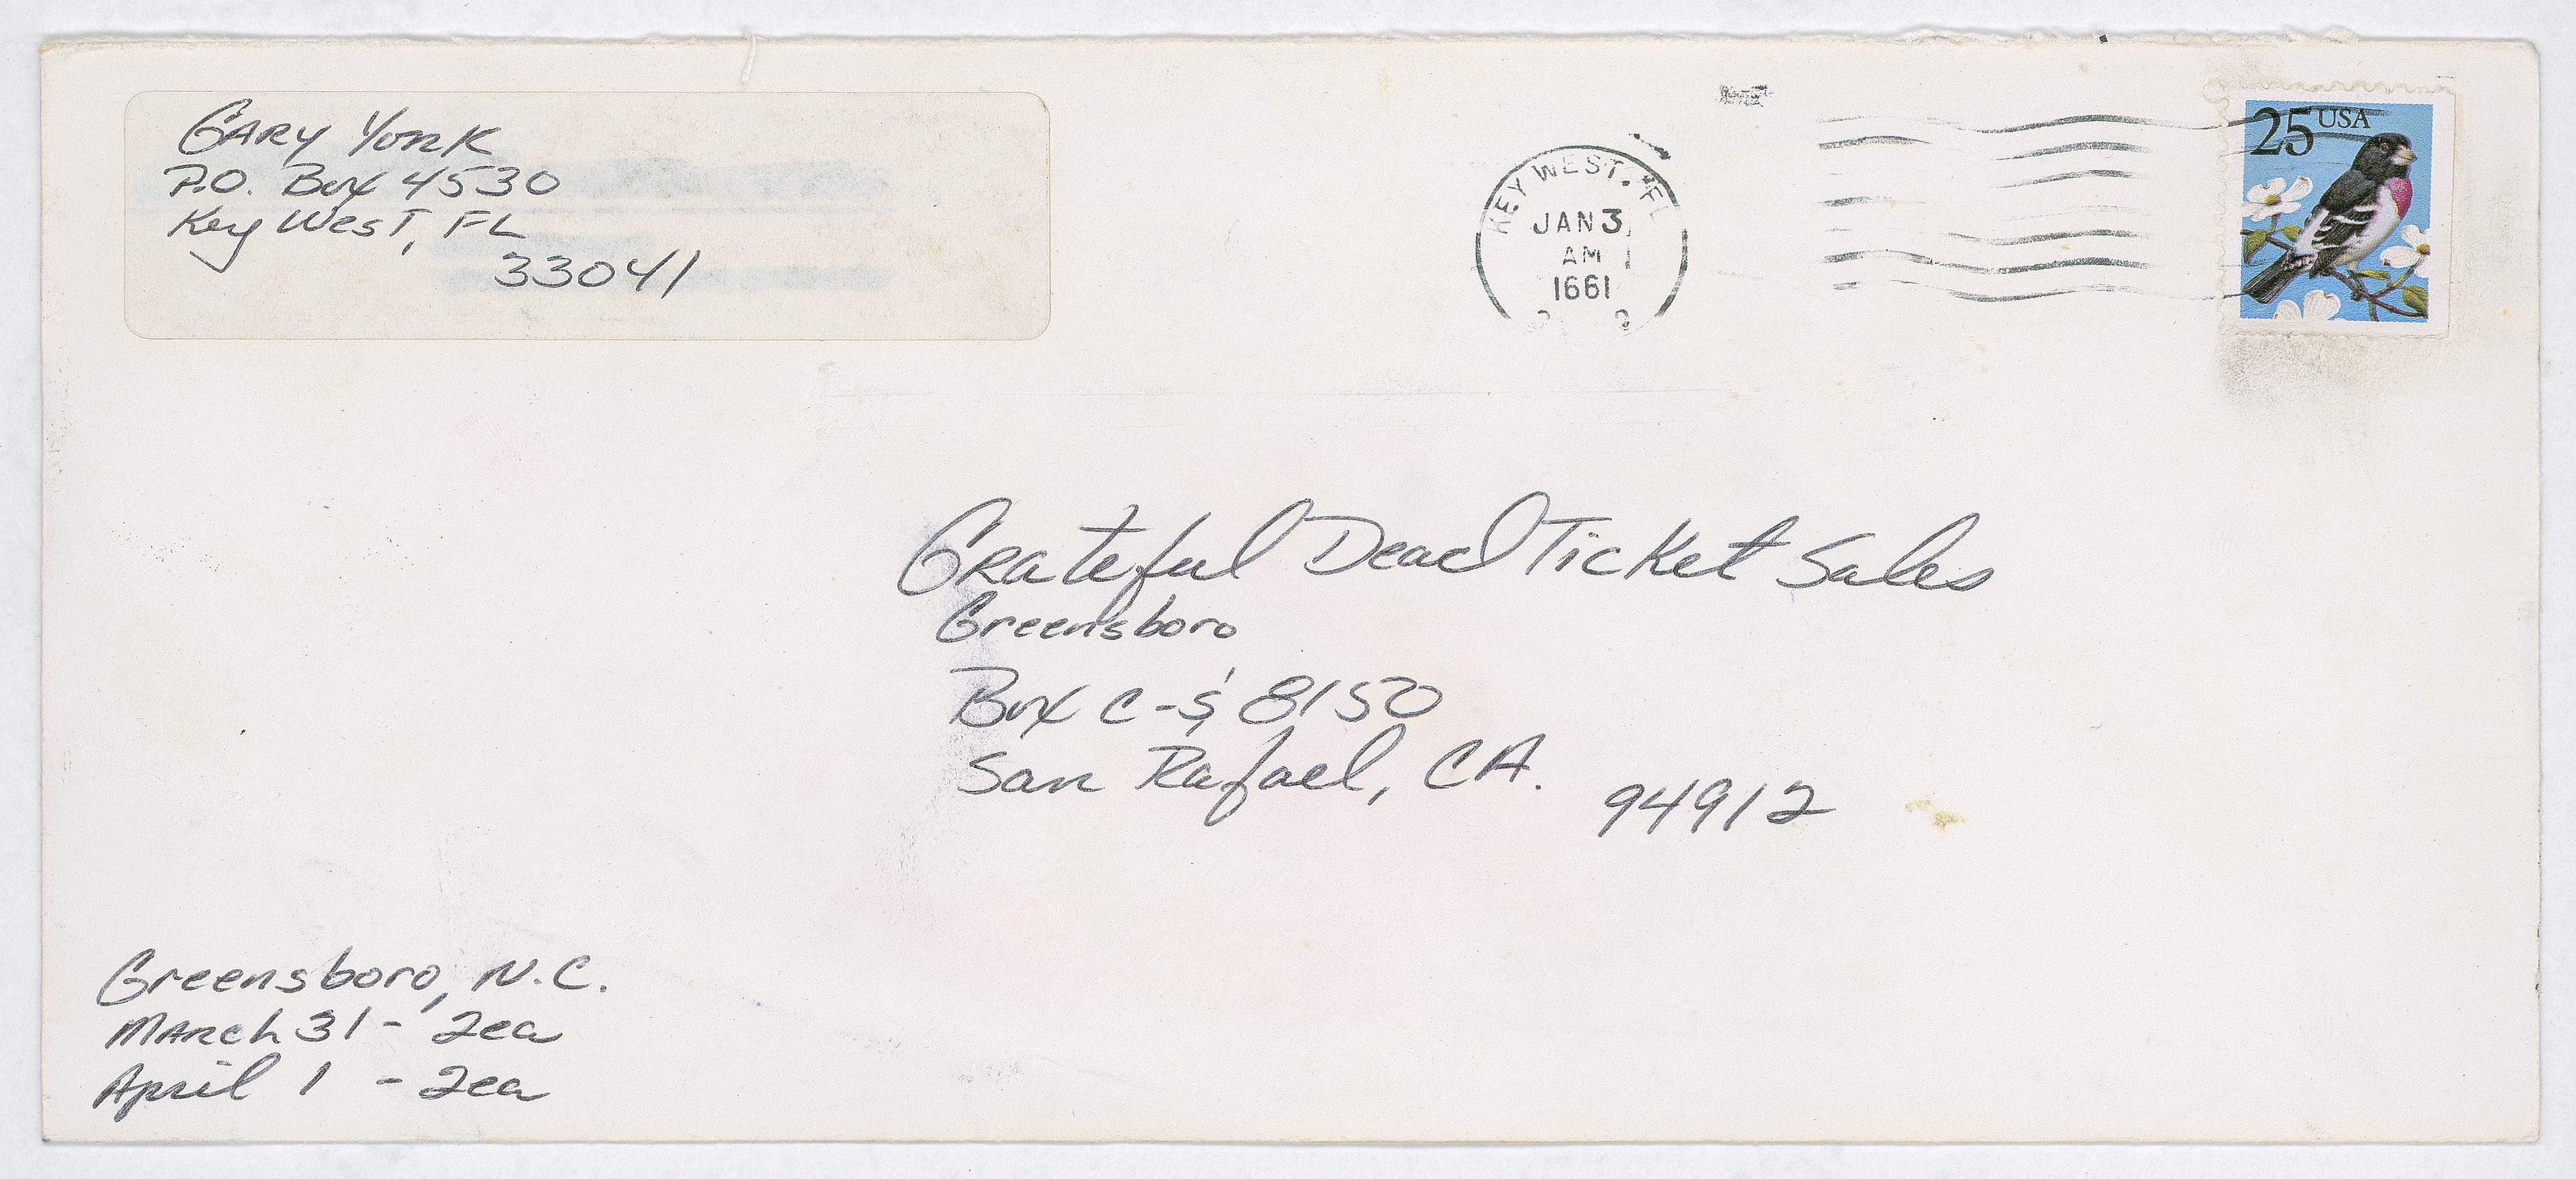 GARY YORK
P.O. Box 4530
Key West, FL
33041
KEY WEST, FL
JAN 3
AM
1661
25 USA
Grateful Dead Ticket Sales
Greensboro
Box C-S 8150
San Rafael, CA.
94912
Greensboro, N.C.
March 31 - 2ea
April 1 - 2ea